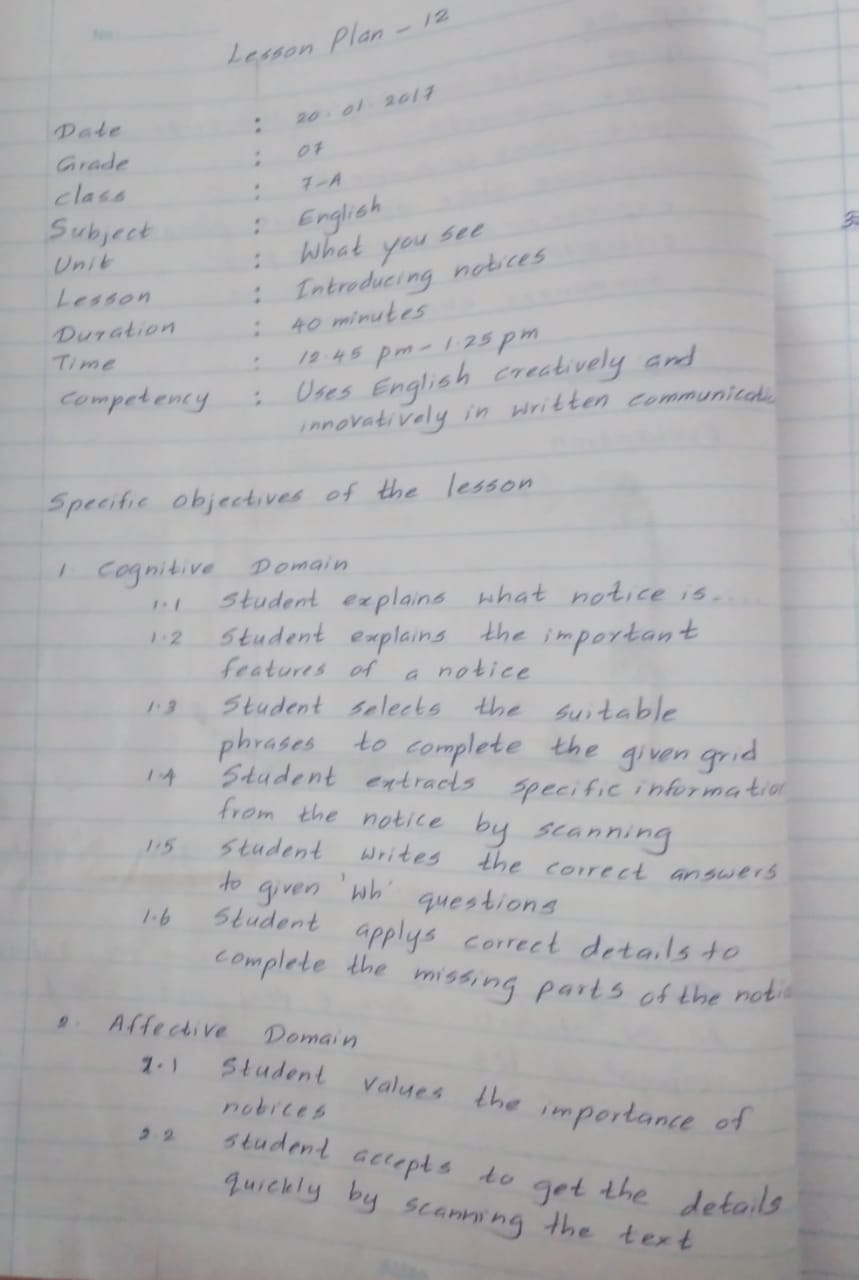 Lesson Plan - 12
Date : 20.01.2017
Grade : 07
class : 7-A
Subject : English
Unit : What you see
Lesson : Introducing notices
Duration : 40 minutes
Time : 12.45 pm - 1.25 pm
Competency : Uses English creatively and
innovatively in written communicatio
Specific objectives of the lesson
1. Cognitive Domain
1.1 Student explains what notice is...
1.2 Student explains the important
features of a notice
1.3 Student selects the suitable
phrases to complete the given grid
1.4 Student extracts specific information
from the notice by scanning
1.5 Student writes the correct answers
to given 'Wh' questions
1.6 Student applys correct details to
complete the missing parts of the notic
2. Affective Domain
2.1 Student values the importance of
notices
2.2 Student accepts to get the details
quickly by scanning the text